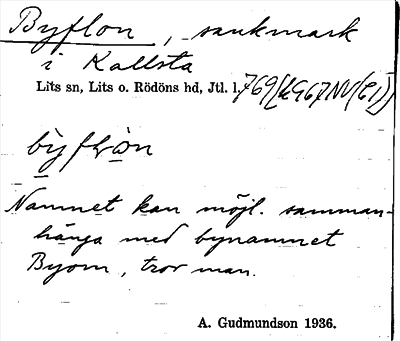 Byflon, sankmark
i Kallsta
Lits sn, Lits o. Rödöns hd, Jtl. l.
byflon
Namnet kan möjl. samman-
hänga med bynamnet
Byom, tror man.
A. Gudmundson 1936.